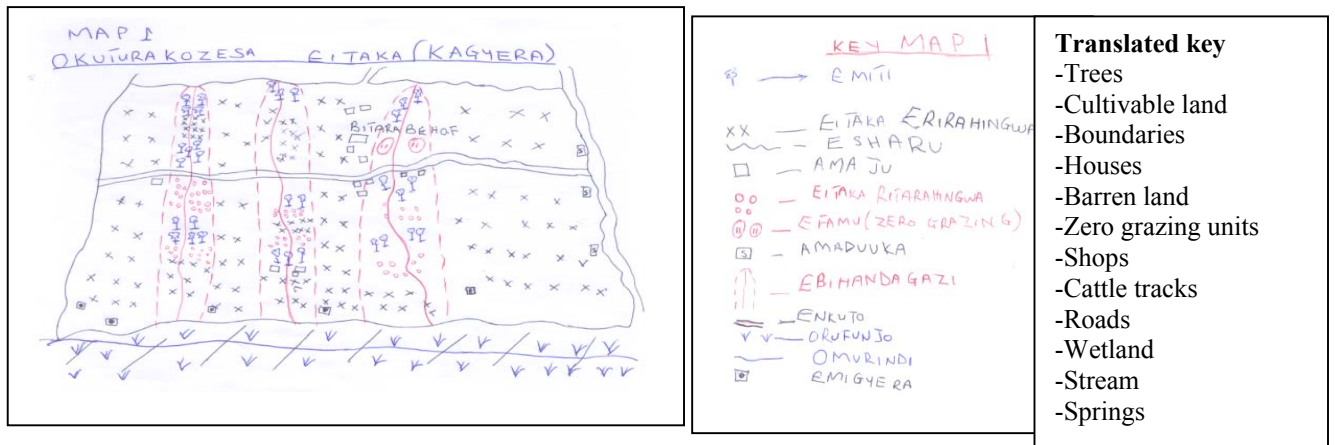 MAP 1
OKUTURAKOZESA EITAKA (KAGYERA)
BITARABEHOF
S
S
S
KEY MAP 1
EMITI
XX — EITAKA ERIRAHINGWA
ESHARU
AMAJU
EITAKA RITARAHINGWA
EFAMU (ZERO GRAZING)
S AMADUUKA
EBIHANDAGAZI
ENKUTO
ORUFUNJO
OMURINDI
EMIGYERA
Translated key
-Trees
-Cultivable land
-Boundaries
-Houses
-Barren land
-Zero grazing units
-Shops
-Cattle tracks
-Roads
-Wetland
-Stream
-Springs